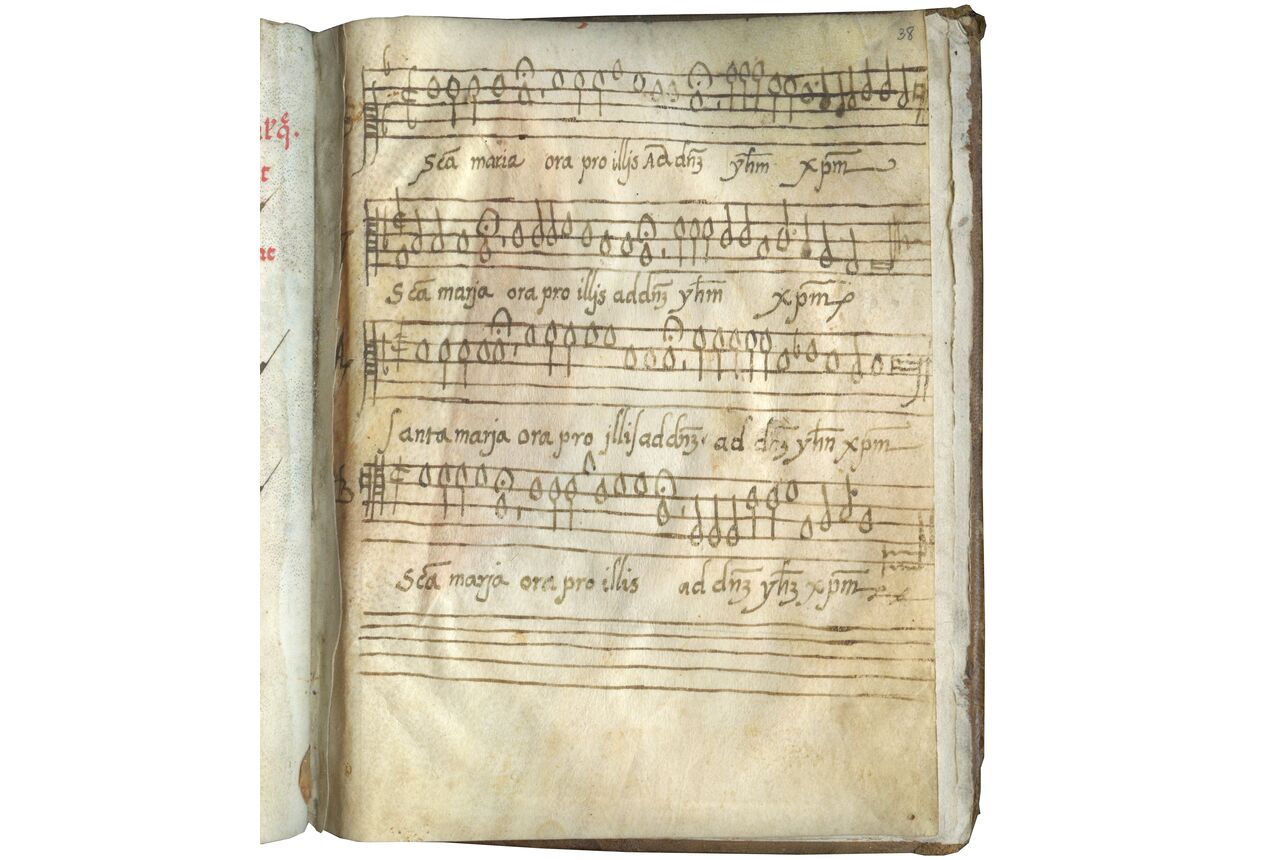 38
Sc̄a maria ora pro illis Ad dn̄ȝ yh̄m xp̄m
Sc̄a marja ora pro illis ad dn̄ȝ yh̄m xp̄m
A
santa marja ora pro illis ad dn̄ȝ. ad dn̄ȝ yh̄n xp̄m
B
Sc̄a marja ora pro illis ad dn̄ȝ yh̄ȝ xp̄m